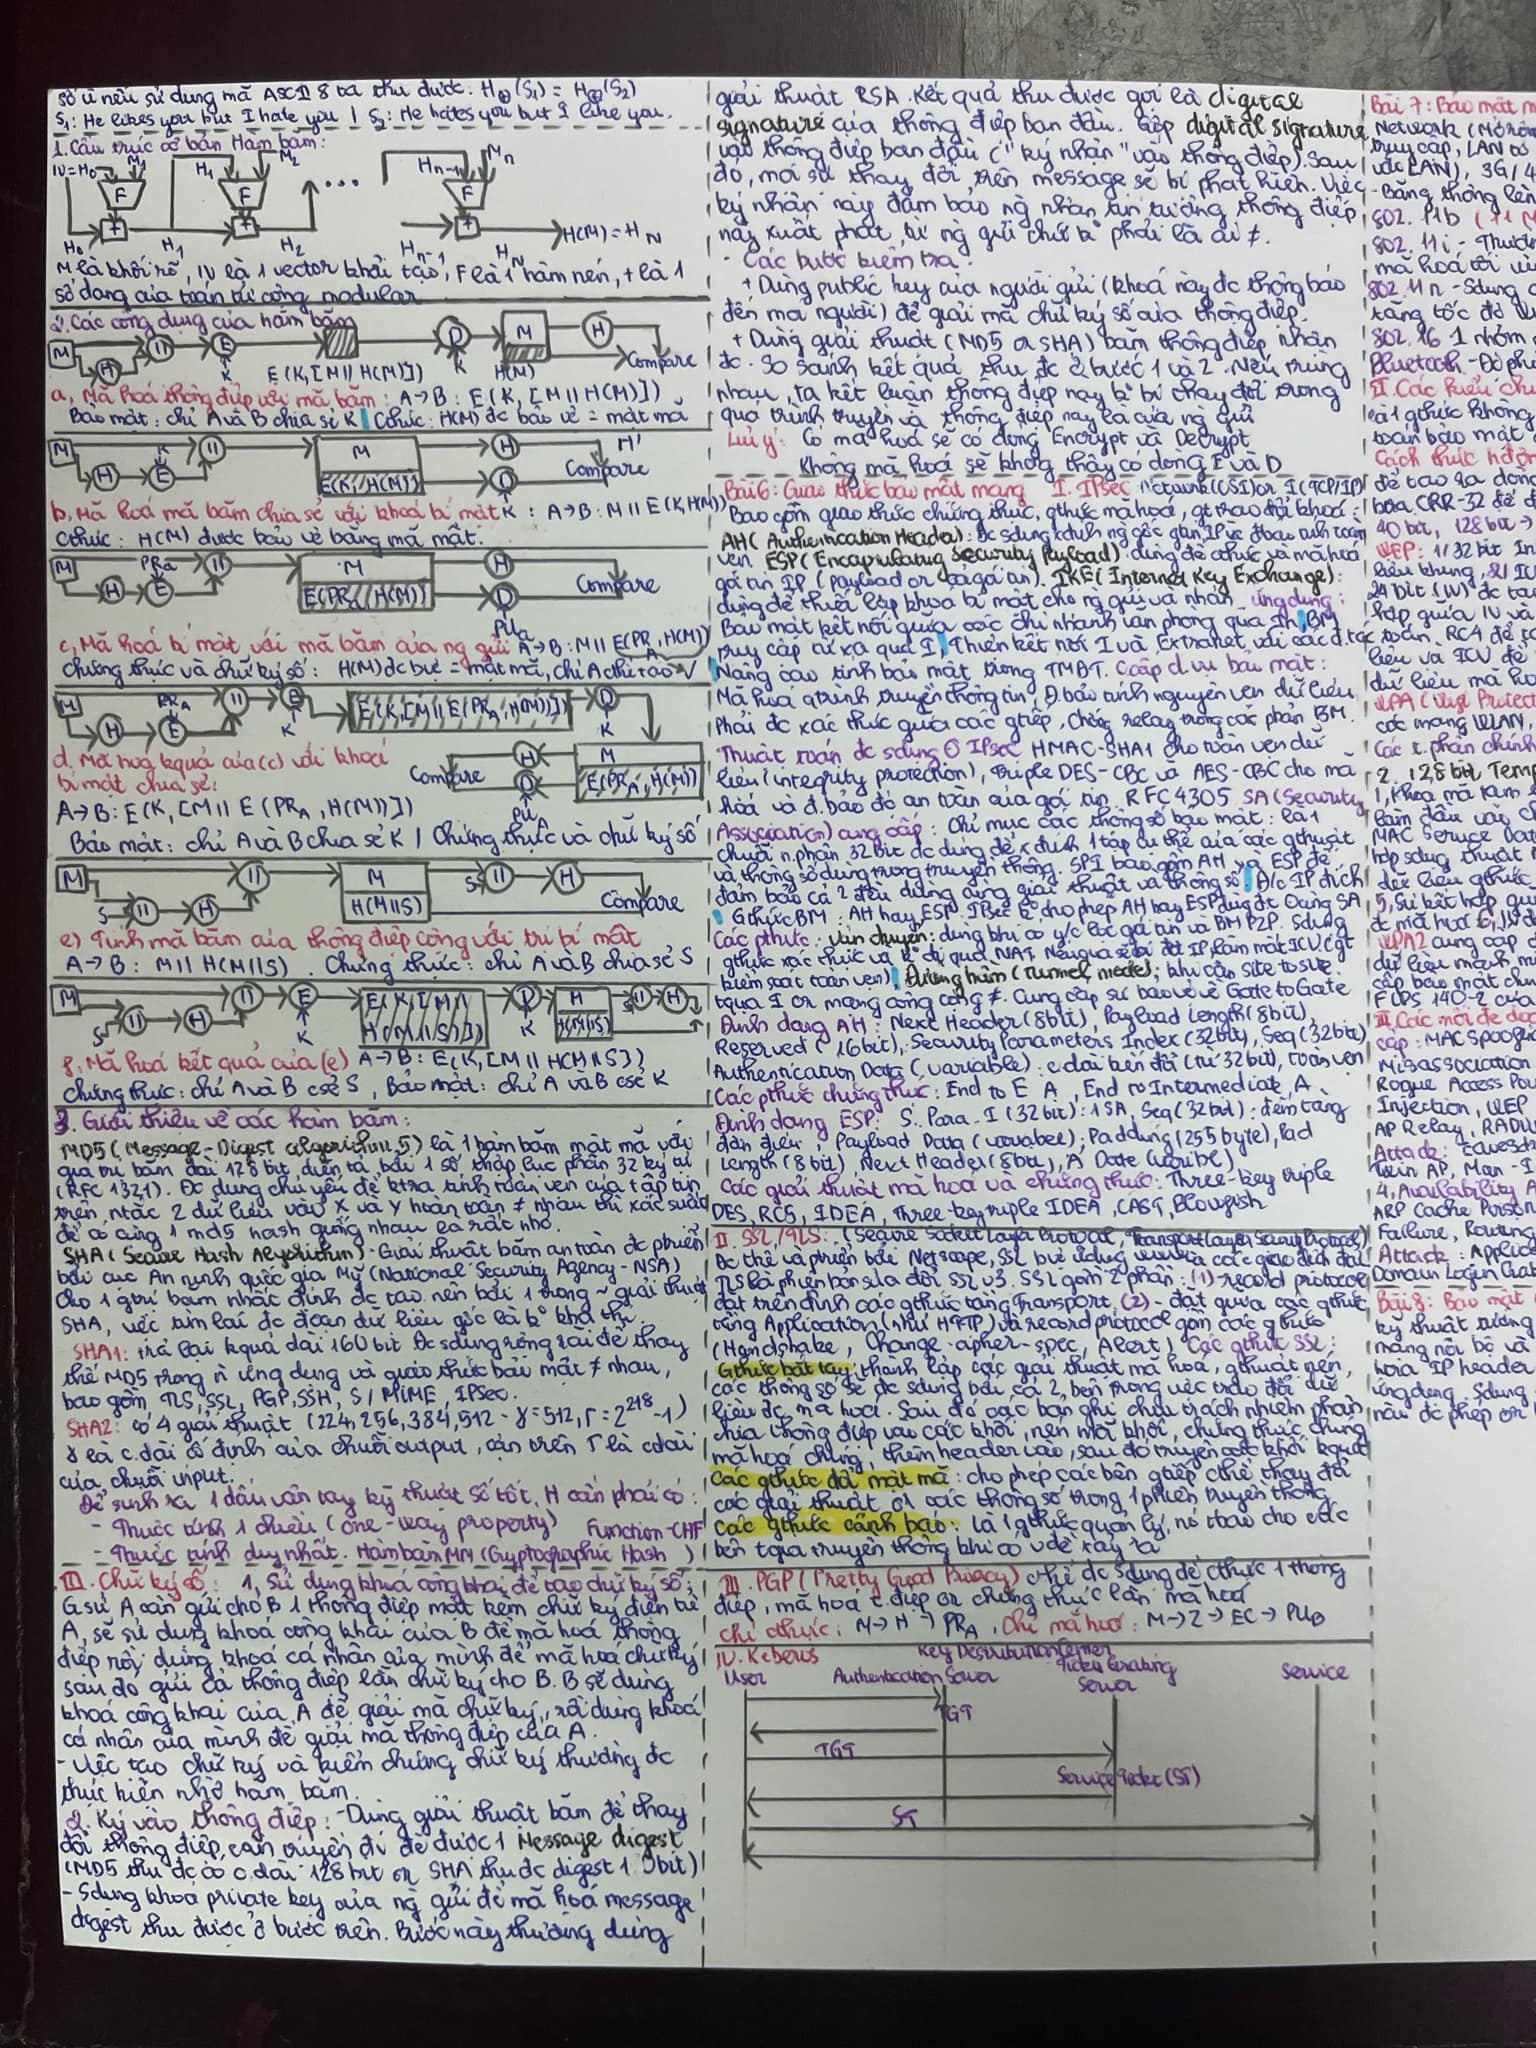 số ü nếu sử dụng mã ASCII 8 ta thu được: H⊕(S₁) = H⊕(S₂)
S₁: He likes you but I hate you | S₂: He hates you but I like you.
1. Cấu trúc cơ bản Hàm băm:
IV=H₀ M₁ H₁ M₂ ... Hn-1 Mn
F F F
+ + +
H₀ H₁ H₂ Hn-1 HN H(M) = HN
M là khối rõ, IV là 1 vector khởi tạo, F là 1 hàm nén, + là 1
số dạng của toán tử cộng modular
2. Các công dụng của hàm băm
M H || E K E(K,[M||H(M)]) D K M H(M) H Compare
a, Mã hoá thông điệp với mã băm: A→B: E(K,[M||H(M)])
Bảo mật: chỉ A và B chia sẻ K | Cthức: H(M) đc bảo vệ = mật mã
M H E K || M E(K,H(M)) H H' D K Compare
b, Mã hoá mã băm chia sẻ với khoá bí mật K: A→B: M||E(K,H(M))
Cthức: H(M) được bảo vệ bằng mã mật.
M H E PRa || M E(PRa,H(M)) H D PUa Compare
c, Mã hoá bí mật với mã băm của ng gửi A→B: M||E(PRA,H(M))
Chứng thực và chữ ký số: H(M) đc bvệ = mật mã, chỉ A
M H E PRA || E K E(K,[M||E(PRA,H(M))]) D K
d. Mã hoá kquả của (c) với khoá
bí mật chia sẻ:
Compare H D PUA M E(PRA,H(M))
A→B: E(K,[M||E(PRA,H(M))])
Bảo mật: chỉ A và B chia sẻ K / Chứng thực và chữ ký số
M S || H || M H(M||S) S || H Compare
e) Tính mã băm của thông điệp cộng với trị bí mật
A→B: M||H(M||S). Chứng thực: chỉ A và B chia sẻ S
M S || H || E K E(K,[M|| H(M||S)]) D K M H(M||S) S || H
f, Mã hoá kết quả của (e) A→B: E(K,[M||H(M||S])
Chứng thực: chỉ A và B csẻ S, Bảo mật: chỉ A và B csẻ K
3. Giới thiệu về các hàm băm:
MD5 (Message-Digest algorithm 5) là 1 hàm băm mật mã với
giá trị băm dài 128 bit, diễn tả bởi 1 số thập lục phân 32 ký tự
(RFC 1321). Đc dùng chủ yếu để ktra tính toàn vẹn của tập tin
trên ntắc 2 dữ liệu vào X và Y hoàn toàn ≠ nhau thì xác suất
để có cùng 1 md5 hash giống nhau là rất nhỏ.
SHA (Secure Hash Algorithm). Giải thuật băm an toàn đc ptriển
bởi cục An ninh quốc gia Mỹ (National Security Agency - NSA)
Cho 1 gtrị băm nhất định đc tạo nên bởi 1 trong ~ giải thuật
SHA, việc tìm lại đc đoạn dữ liệu gốc là k° khả thi.
SHA1: trả lại kquả dài 160 bit. Đc sdụng rộng rãi để thay
thế MD5 trong ứng dụng và giao thức bảo mật ≠ nhau,
bao gồm TLS, SSL, PGP, SSH, S/MIME, IPSec.
SHA2: có 4 giải thuật (224, 256, 384, 512 - γ=512, Γ=2²¹⁸-1)
γ là c.dài cố định của chuỗi output, cận trên Γ là c dài
của chuỗi input.
Để sinh ra 1 dấu vân tay kỹ thuật số tốt, H cần phải có:
- Thuộc tính 1 chiều (one-way property) Function-CHF
- Thuộc tính duy nhất. Hàm băm MM (Cryptographic Hash )
III. Chữ ký số: 1, Sử dụng khoá công khai để tạo chữ ký số:
G.sử A cần gửi cho B 1 thông điệp mật kèm chữ ký điện tử
A, sẽ sử dụng khoá công khai của B để mã hoá thông
điệp rồi dùng khoá cá nhân của mình để mã hoá chữ ký
sau đó gửi cả thông điệp lẫn chữ ký cho B. B sẽ dùng
khoá công khai của A để giải mã chữ ký, rồi dùng khoá
cá nhân của mình để giải mã thông điệp của A.
- Việc tạo chữ ký và kiểm chứng chữ ký thường đc
thực hiện nhờ hàm băm.
2. Ký vào thông điệp: - Dùng giải thuật băm để thay
đổi thông điệp cần truyền đi để được 1 Message digest
(MD5 thu đc có c.dài 128 bit or SHA thu đc digest 1 bit)
- Sdụng khoá private key của ng gửi để mã hoá message
digest thu được ở bước trên. Bước này thường dùng
giải thuật RSA. Kết quả thu được gọi là digital
signature của thông điệp ban đầu. Gộp digital signature
vào thông điệp ban đầu ("ký nhận" vào thông điệp). Sau
đó, mọi sự thay đổi trên message sẽ bị phát hiện. Việc
ký nhận này đảm bảo ng nhận tin tưởng thông điệp
này xuất phát từ ng gửi chứ k° phải là ai ≠.
- Các bước kiểm tra:
+ Dùng public key của người gửi (khoá này đc thông báo
đến mọi người) để giải mã chữ ký số của thông điệp.
+ Dùng giải thuật (MD5 or SHA) băm thông điệp nhận
đc. So sánh kết quả thu đc ở bước 1 và 2. Nếu trùng
nhau, ta kết luận thông điệp này k° bị thay đổi trong
quá trình truyền và thông điệp này là của ng gửi
Lưu ý: Có mã hoá sẽ có dòng Encrypt và Decrypt
Không mã hoá sẽ không thấy có dòng E và D
Bài 6: Giao thức bảo mật mạng I. IPsec Network (OSI) or I (TCP/IP)
Bao gồm giao thức chứng thực, gthức mã hoá, gt trao đổi khoá:
AH (Authentication Header): Đc sdụng xđịnh ng gốc gtin IP và đbảo tính toàn
vẹn. ESP (Encapsulating Security Payload): dùng để cthực và mã hoá
gói tin IP (payload or cả gói tin). IKE (Internet Key Exchange):
dùng để thiết lập khoá bí mật cho ng gửi và nhận. Ứng dụng:
Bảo mật kết nối giữa các chi nhánh văn phòng qua In, BM
truy cập từ xa qua I, Thiên kết nối I và Extranet với các đ.tác
Nâng cao tính bảo mật trong TMĐT. Ccấp d.vụ bảo mật:
Mã hoá qtrình truyền thông tin, Đ.bảo tính nguyên vẹn dữ liệu,
Phải đc xác thực giữa các gtiếp, Chống relay trong các phiên BM.
Thuật toán đc sdụng ở IPsec HMAC-SHA1 cho toàn vẹn dữ
liệu (integrity protection), Triple DES-CBC và AES-CBC cho mã
hoá và đ.bảo độ an toàn của gói tin. RFC4305 SA (Security
Association) cung cấp: Chỉ mục các thông số bảo mật: là 1
chuỗi n.phân 32 bit đc dùng để xđịnh 1 tập cụ thể của các gthuật
và thông số dùng trong truyền thông. SPI bao gồm AH và ESP để
đảm bảo cả 2 đều dùng cùng giải thuật và thông số, Đ/c IP đích
Gthức BM: AH hay ESP. IPsec k° cho phép AH hay ESP dùng SA
Các pthức: Vận chuyển: dùng khi có y/c lọc gói tin và BM P2P. Sdụng
gthức xác thực và k° đi qua NAT
kiểm soát toàn vẹn), Đường hầm (Tunnel mode): khi cần site to site
tqua I or mạng công cộng ≠. Cung cấp sự bảo vệ Gate to Gate
Định dạng AH: Next Header (8bit), Payload Length (8bit),
Reserved (16bit), Security Parameters Index (32bit), Seq (32bit)
Authentication Data (variable): c.dài biến đổi (từ 32bit), toàn vẹn
Các pthức chứng thực: End to E A, End to Intermediate A.
Định dạng ESP: S. Para. I (32 bit): 1 SA, Seq (32 bit): đếm tăng
đơn điệu, Payload Data (variabee), Padding (255 byte), Pad
length (8 bit), Next Header (8bit), A Date (varible)
Các giải thuật mã hoá và chứng thực: Three-key triple
DES, RC5, IDEA, Three-key triple IDEA, CAST, Blowfish
II. SSL/TLS: (Secure Socket Layer Protocol, Transport Layer Security Protocol)
TLS là phiên bản sửa đổi SSL v3. SSL gồm 2 phần: (1) record protocol
đặt trên đỉnh các gthức tầng Transport, (2) - đặt giữa các gthức
tầng Application (như HTTP) và record protocol gồm các gthức
(Handshake, Change-cipher-spec, Alert) Các gthức SSL:
Gthức bắt tay: thành lập các giải thuật mã hoá, gthuật nén,
các thông số sẽ đc sdụng bởi cả 2 bên trong việc trao đổi dữ
liệu đc mã hoá. Sau đó các bản ghi chịu trách nhiệm phân
chia thông điệp vào các khối, nén mỗi khối, chứng thực chúng
mã hoá chúng, thêm header vào, sau đó truyền các khối kquả
Các gthức đổi mật mã: cho phép các bên gtiếp cthể thay đổi
các giải thuật or các thông số trong 1 phiên truyền thông
Các gthức cảnh báo: là 1 gthức quản lý, nó tbáo cho các
bên tqua truyền thông khi có vđề xảy ra
III. PGP (Pretty Good Privacy) cthể đc sdụng để cthực 1 thông
điệp, mã hoá t.điệp or chứng thực lẫn mã hoá
chỉ cthực: M→H→PRA, Chỉ mã hoá: M→Z→EC→PUB
IV. Keberus Key Destribution Center
User Authentication Server Ticket Granting Server Service
TGT
TGT
Service Ticket (ST)
ST
Bài 7: Bảo mật m
Network (Mở rộn
truy cập, LAN to
với LAN), 3G/4
- Băng thông lên
802.11b (11 M
802.11i - Thươ
mã hoá tối
802.11n - Sdụng
tăng tốc độ
802.16 1 nhóm
Bluetooth - Độ ph
II. Các kiểu ch
là 1 gthức không
toàn bảo mật
Cách thức hđộn
để tạo ra dòng
40 bit, 128 bit →
WEP: 1/ 32 bit In
liệu khung, 2/ IC
24 bit (IV) đc tạ
hợp giữa IV và
toán. RC4 để t
liệu và ICV để
dữ liệu mã ho
WPA (Wifi Protec
các mạng WLAN,
Các t.phần chính
2. 128 bit Temp
MAC Service Dat
hợp sdụng thuật
dữ liệu gthức
5, Sự kết hợp
WPA2 cung cấp
dữ liệu mạnh m
cấp bảo mật
FIPS 140-2 của
III. Các mối đe do
cập: MAC Spoofi
Misassociation
Rogue Access Po
Injection, WEP
AP Relay, RADIU
Attack: Eavesd
Twin AP, Man-I
4, Availability A
ARP Cache Poison
Failure, Routing
Attack: Applic
Domain Login Crac
Bài 8: Bảo mật
kỹ thuật tường
mạng nội bộ và
IP header
ứng dụng. Sdụng
nào đc phép or